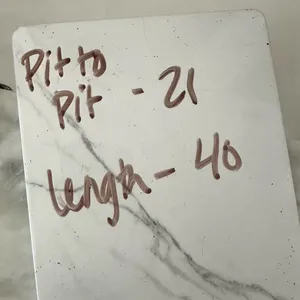 Pit to
Pit - 21
Length - 40